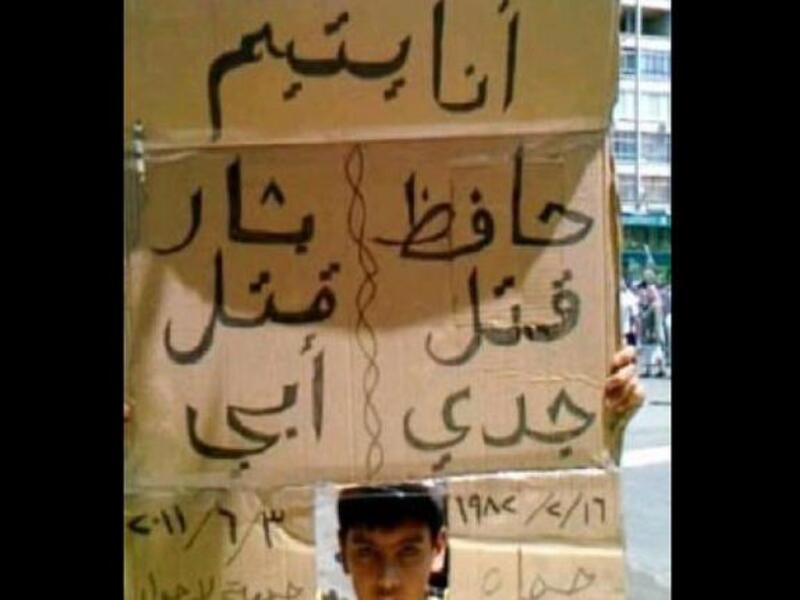 أنا يتيم
حافظ
قتل
جدي
١٦/٢/١٩٨٢
حماة
بشار
قتل
أبي
٣/٦/٢٠١١